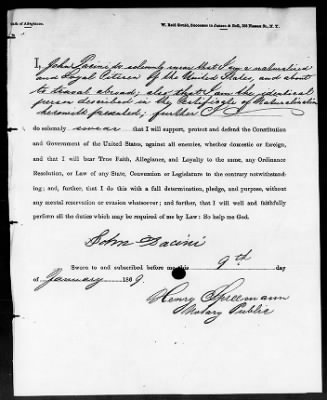 Oath of Allegiance.
W. Reid Gould, Successor to James & Gould, 168 Nassau St., N. Y.
I, John Pacini do solemnly swear that I am a naturalized
and Loyal Citizen of the United States, and about
to travel abroad; also that I am the identical
person described in the Certificate of Naturalization
herewith presented; further I
do solemnly swear that I will support, protect and defend the Constitution
and Government of the United States, against all enemies, whether domestic or foreign,
and that I will bear True Faith, Allegiance, and Loyalty to the same, any Ordinance
Resolution, or Law of any State, Convention or Legislature to the contrary notwithstand-
ing; and, further, that I do this with a full determination, pledge, and purpose, without
any mental reservation or evasion whatsoever; and further, that I will well and faithfully
perform all the duties which may be required of me by Law: So help me God.
John Pacini
Sworn to and subscribed before me this 9th day
of January 1869.
Henry Spreemann
Notary Public